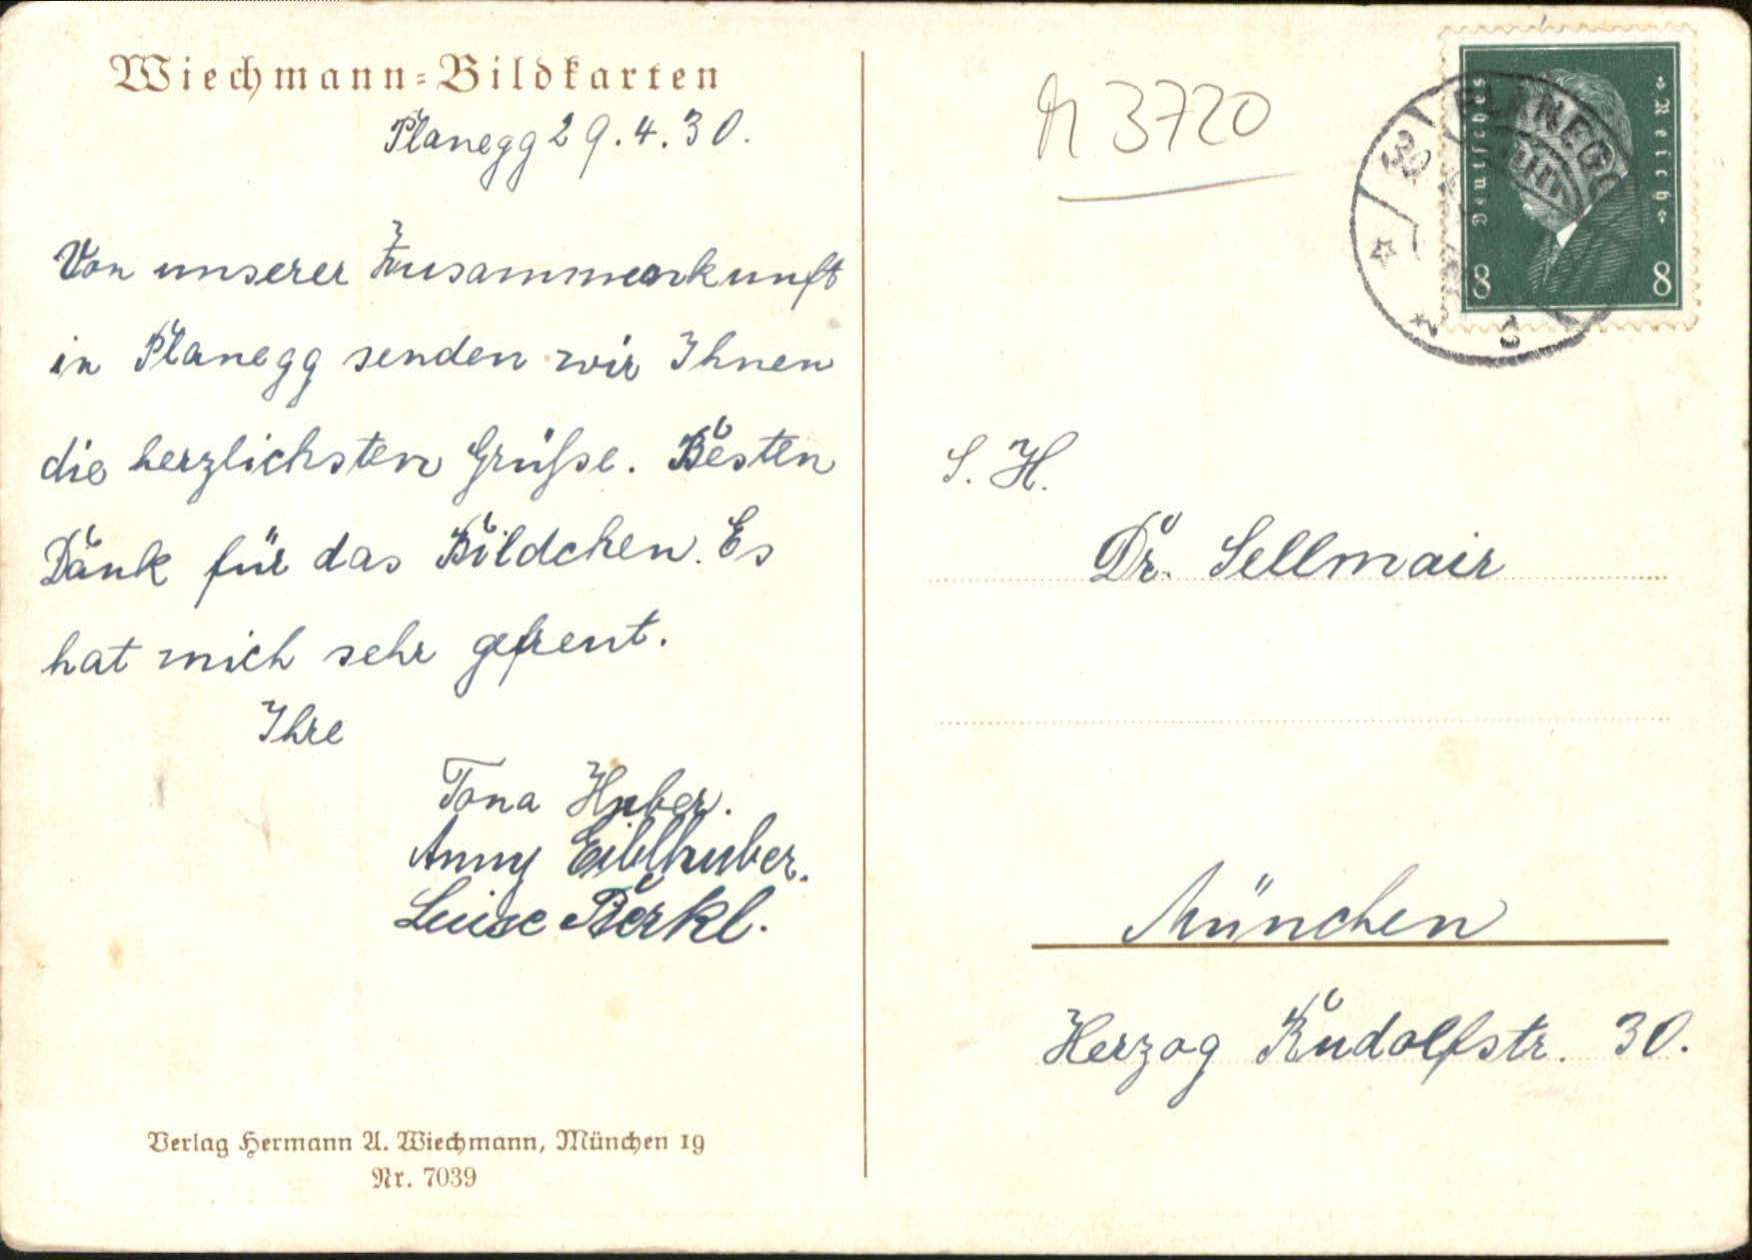 Wiechmann=Bildkarten
Planegg 29.4.30.
Von unserer Zusammenkunft
in Planegg senden wir Ihnen
die herzlichsten Grüße. Besten
Dank für das Bildchen. Es
hat mich sehr gefreut.
Ihre
Tona Huber.
Anny Eiblhuber.
Luise Berkl.
Verlag Hermann A. Wiechmann, München 19
Nr. 7039
3720
Deutsches
Reich
8 8
PLANEGG
S. H.
Dr. Sellmair
München
Herzog Rudolfstr. 30.